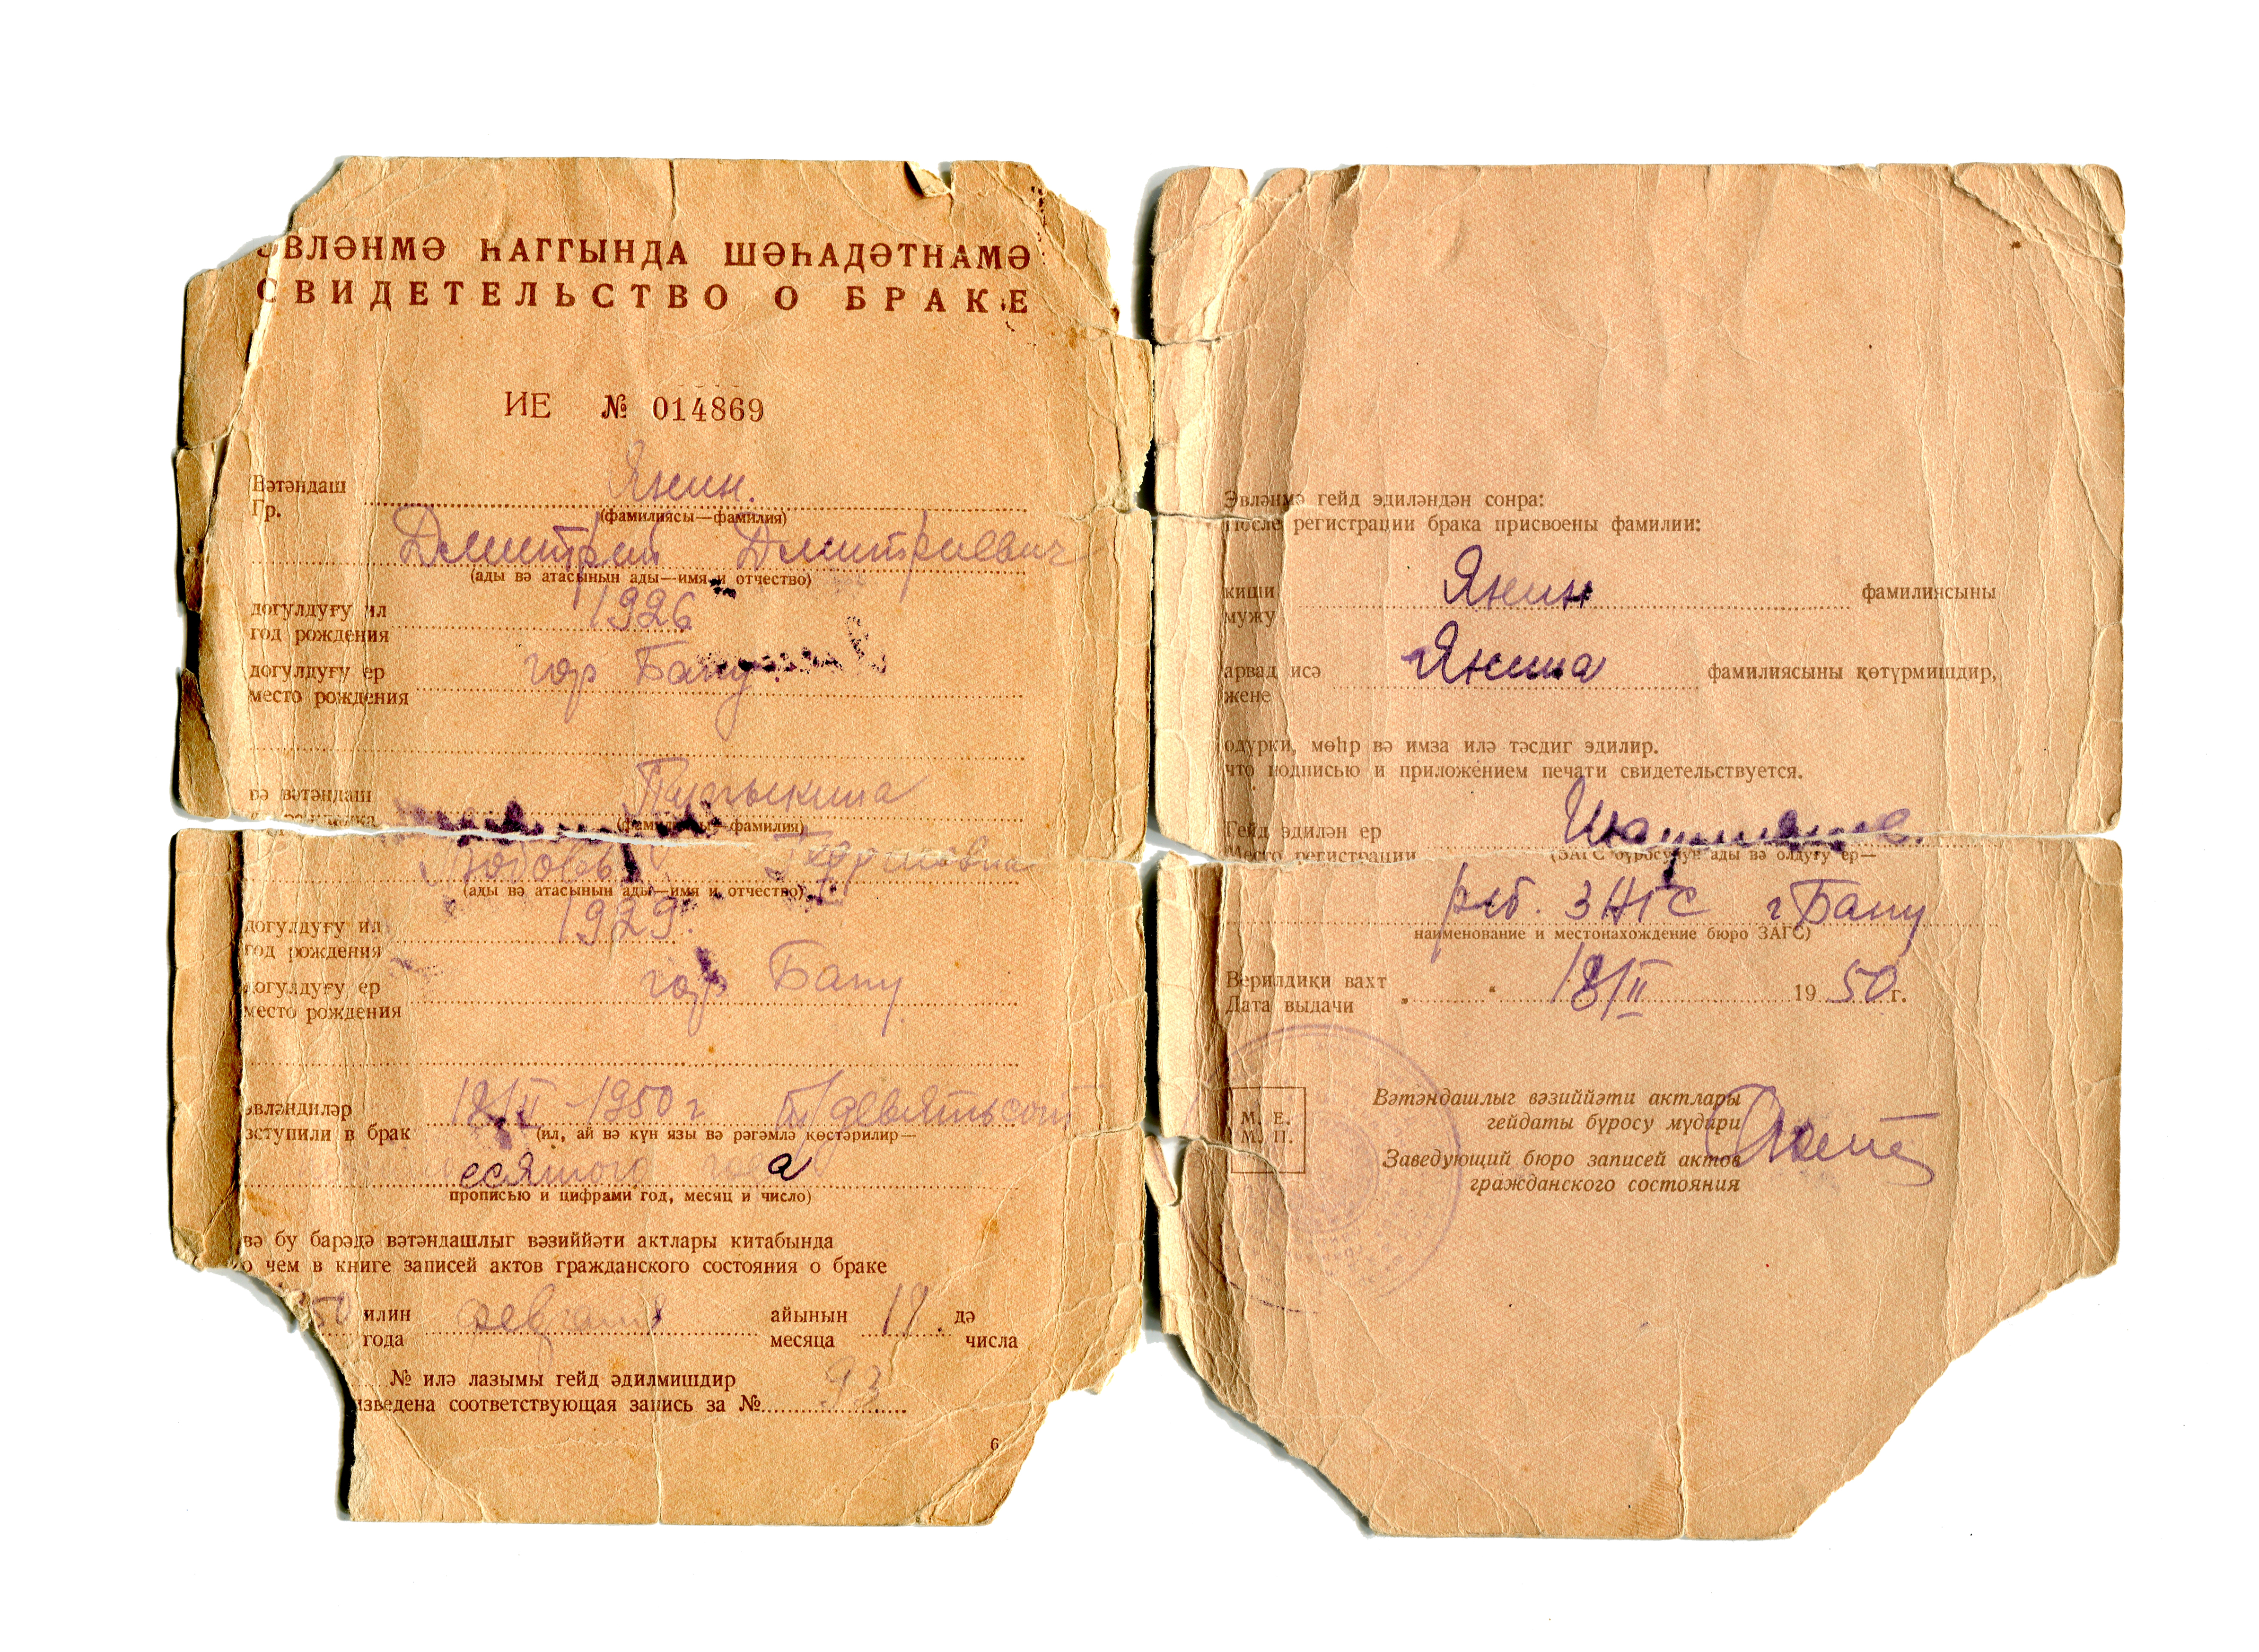 ЭВЛӘНМӘ ҺАГГЫНДА ШӘҺАДӘТНАМӘ
СВИДЕТЕЛЬСТВО О БРАКЕ
ИЕ № 014869
Вәтәндаш
Гр.
Янин.
(фамилиясы—фамилия)
Дмитрий Дмитриевич
(ады вә атасынын ады—имя и отчество)
догулдуғу ил
год рождения
1926
догулдуғу ер
место рождения
гор Баку
вә вәтәндаш
(фамилиясы—фамилия)
Любовь
(ады вә атасынын ады—имя и отчество)
догулдуғу ил
год рождения
1929.
догулдуғу ер
место рождения
гор Баку
эвләндиләр
вступили в брак
18/II-1950 г
(ил, ай вә күн язы вә рәгәмлә көстәрилир—
есятого года
прописью и цифрами год, месяц и число)
вә бу барәдә вәтәндашлыг вәзиййәти актлары китабында
о чем в книге записей актов гражданского состояния о браке
50 илин февраля айынын 18 дә
года месяца числа
№ илә лазымы гейд әдилмишдир
изведена соответствующая запись за № 93
6
Эвләнмә гейд эдиләндән сонра:
После регистрации брака присвоены фамилии:
киши
мужу
Янин
фамилиясыны
арвад исә
жене
Янина
фамилиясыны көтүрмишдир,
одурки, мөһр вә имза илә тәсдиг эдилир.
что подписью и приложением печати свидетельствуется.
Гейд эдилән ер
Место регистрации
Шаумяна.
(ЗАГС бүросунун ады вә олдуғу ер—
ЗАГС г Баку
наименование и местонахождение бюро ЗАГС)
Верилдики вахт
Дата выдачи
„ “ 18/II 1950 г.
М. Е.
М. П.
Вәтәндашлыг вәзиййәти актлары
гейдаты бүросу мүдири
Заведующий бюро записей актов
гражданского состояния